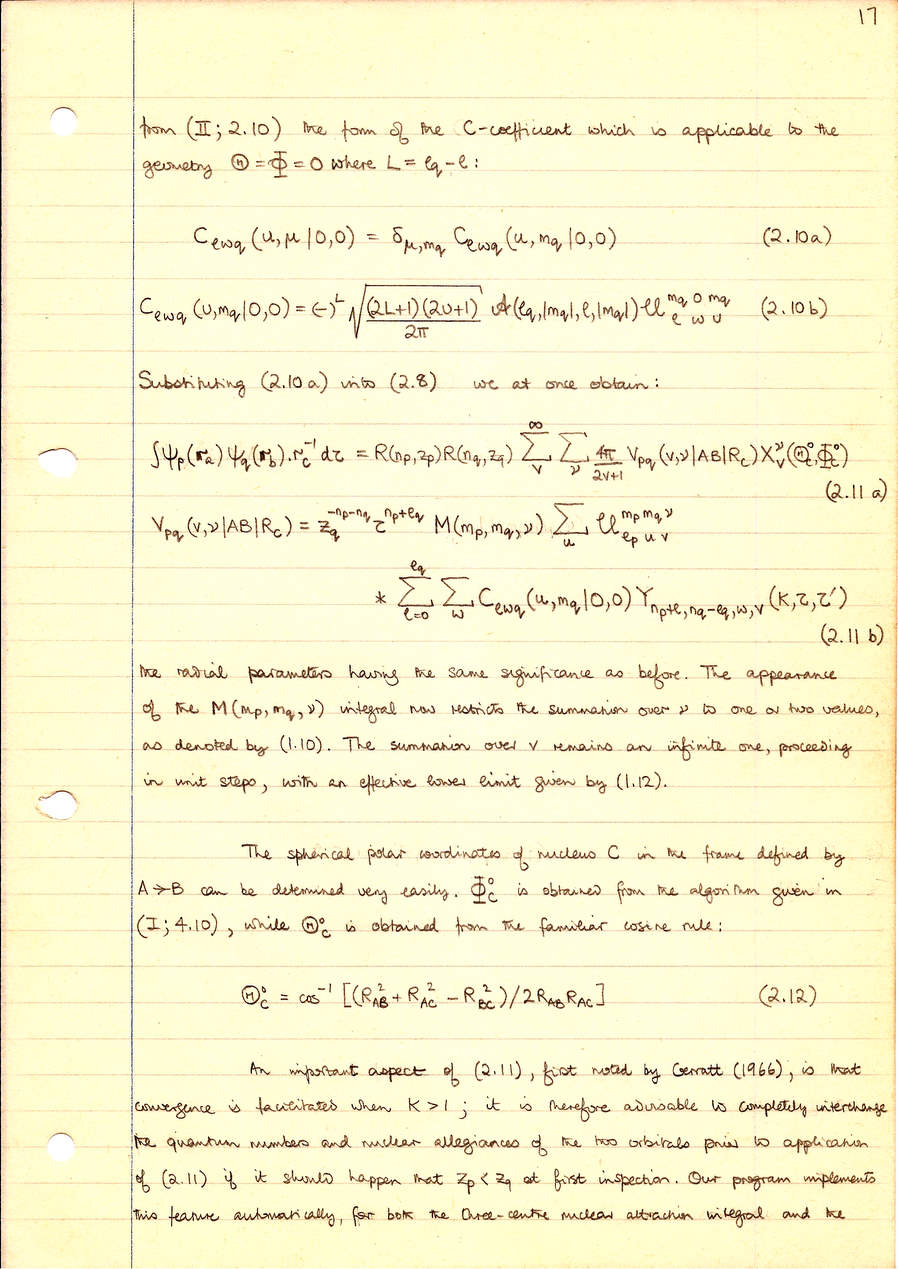 17
from (II; 2.10) the form of the C-coefficient which is applicable to the
geometry Θ = Φ = 0 where L = ℓq - ℓ :
Cℓwq (u, μ | 0,0) = δμ,mq Cℓwq (u, mq | 0,0) (2.10a)
Cℓwq (u, mq | 0,0) = (-)^L √((2L+1)(2u+1)/2π) A(ℓq, |mq|, ℓ, |mq|) U^{mq 0 mq}_{ℓ w u} (2.10b)
Substituting (2.10a) into (2.8) we at once obtain :
∫ψp(ra) ψq(rb). rc^{-1} dτ = R(np,zp) R(nq,zq) Σ_v^∞ Σ_ν 4π/(2v+1) Vpq (v,ν|AB|Rc) X_v^ν (Θ°c, Φ°c)
(2.11 a)
Vpq (v,ν|AB|Rc) = zq^{-np-nq} τ^{np+ℓq} M(mp,mq,ν) Σ_u U^{mp mq ν}_{ℓp u v}
* Σ_{ℓ=0}^{ℓq} Σ_w Cℓwq (u, mq | 0,0) Y_{np+ℓ, nq-ℓq, w, v} (K, τ, τ')
(2.11 b)
the radial parameters having the same significance as before. The appearance
of the M(mp, mq, ν) integral now restricts the summation over ν to one or two values,
as denoted by (1.10). The summation over v remains an infinite one, proceeding
in unit steps, with an effective lower limit given by (1.12).
The spherical polar coordinates of nucleus C in the frame defined by
A→B can be determined very easily. Φ°c is obtained from the algorithm given in
(I; 4.10), while Θ°c is obtained from the familiar cosine rule :
Θ°c = cos⁻¹ [(R²AB + R²AC - R²BC)/2RAB RAC] (2.12)
An important aspect of (2.11), first noted by Gerratt (1966), is that
convergence is facilitated when K > 1 ; it is therefore advisable to completely interchange
the quantum numbers and nuclear allegiances of the two orbitals prior to application
of (2.11) if it should happen that zp < zq at first inspection. Our program implements
this feature automatically, for both the three-centre nuclear attraction integral and the